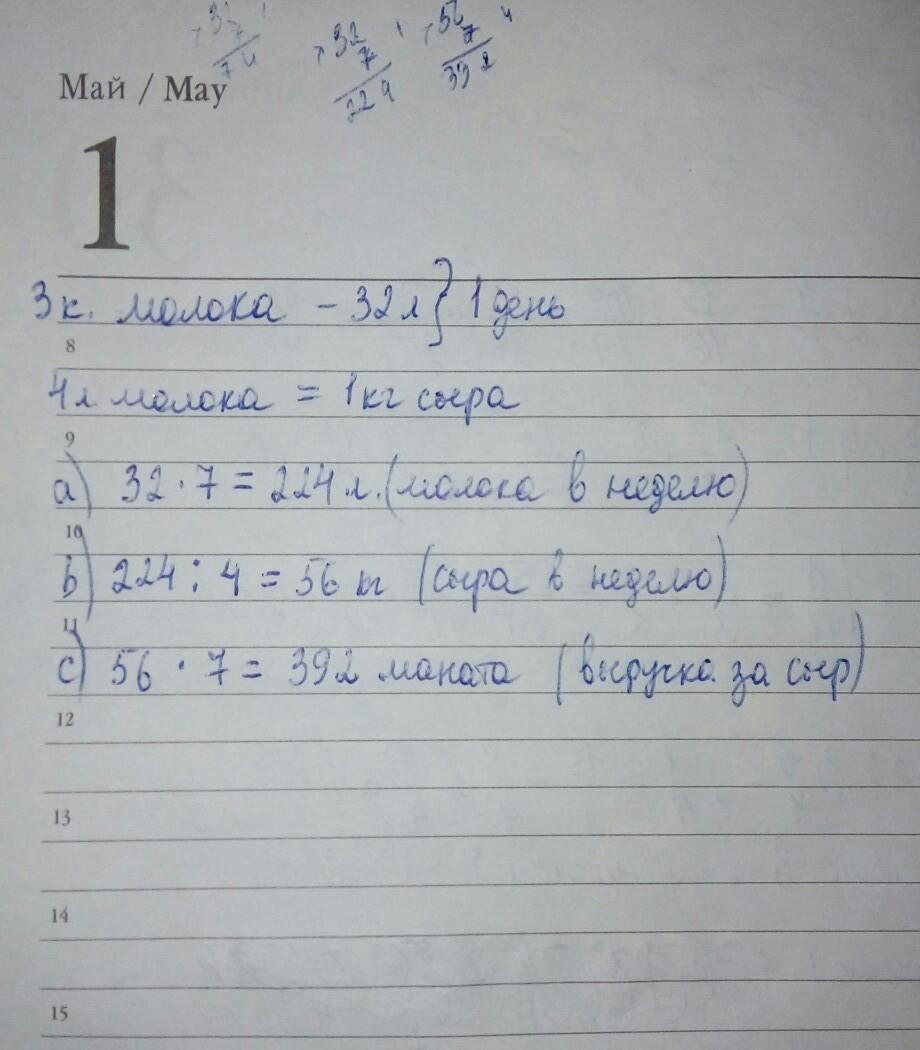 32
7
224
7
Май / May
1
3 к. молока - 32 л } 1 день
8
4 л. молока = 1 кг сыра
9
a) 32 · 7 = 224 л. (молока в неделю)
10
b) 224 : 4 = 56 кг (сыра в неделю)
11
c) 56 · 7 = 392 маната (выручка за сыр)
12
13
14
15